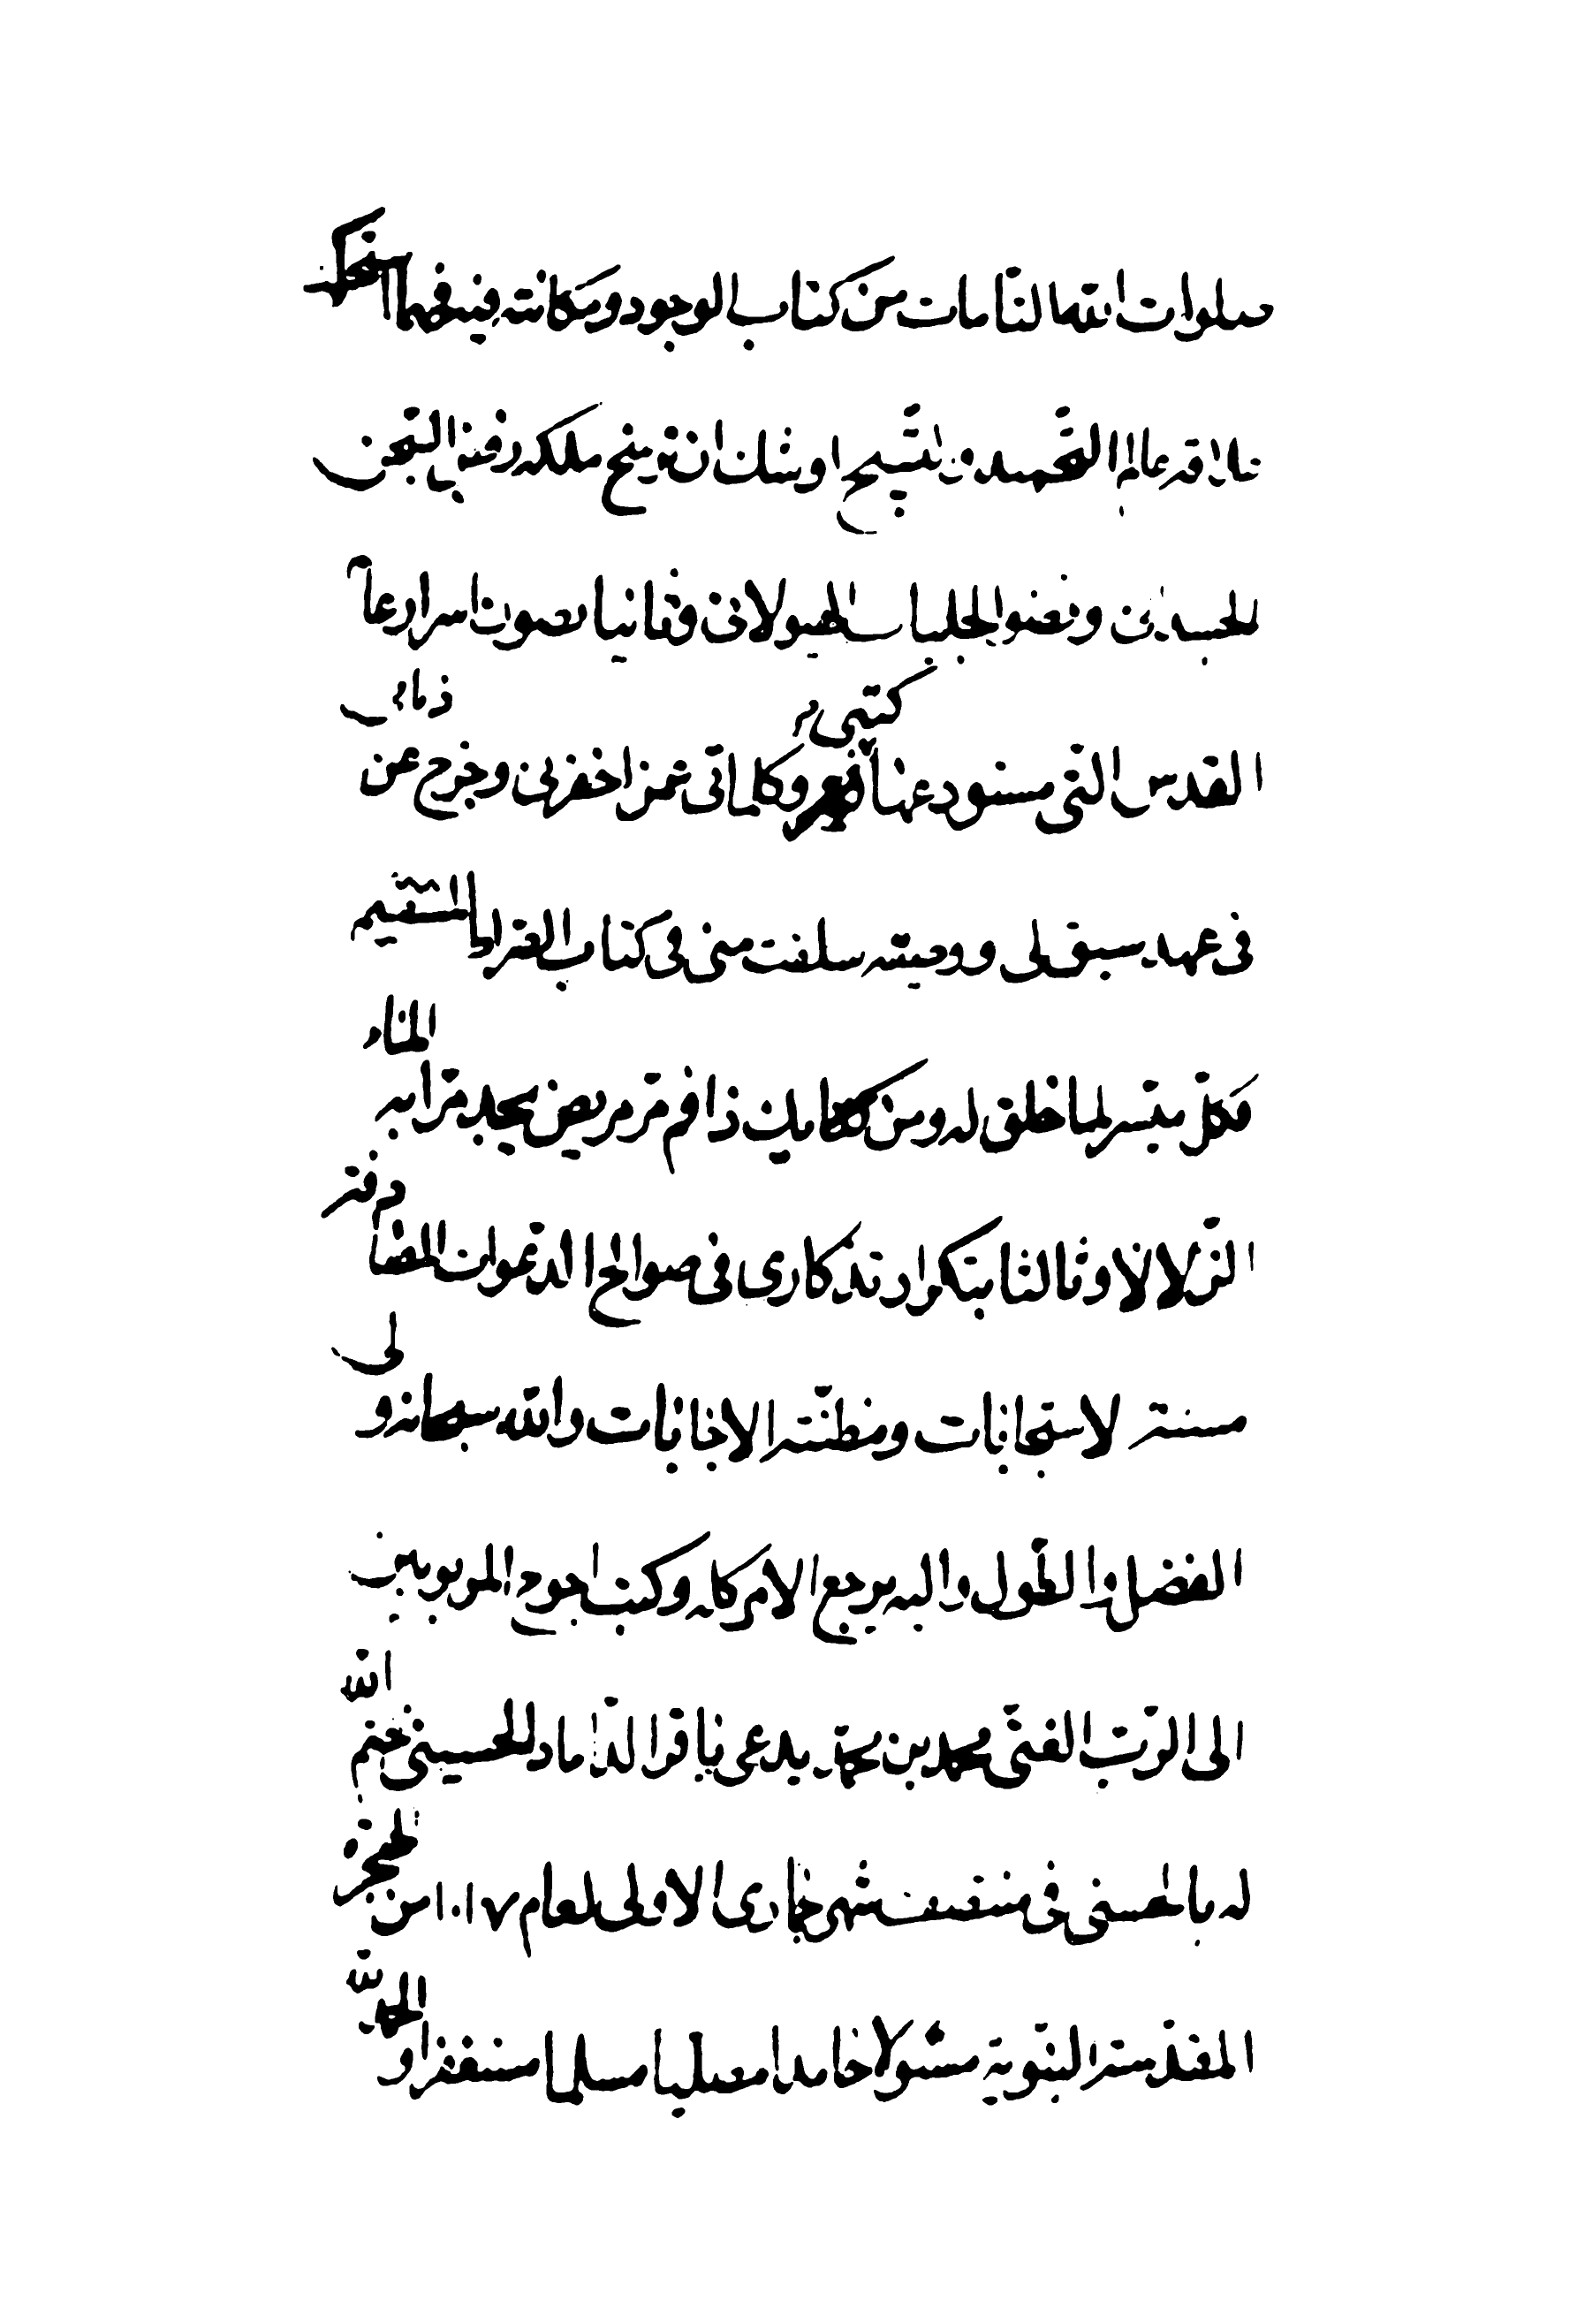 صلوات الله التامات من كتاب الوجود ومكانته فيه فهما
علاقة عالم التحميد والتسبيح اوشك ان ينتج ملكه رفض
للجسد وفضوا لجلباب الهيولانى وثانيا بصون اسرار عالم
القدس التى مستودعها كتبى وكلماتى فمن اخفرنى وخرج عن ذمامى
فى عهد سبق لى ووصية سلفت منى فى كتاب الصراط المستقيم
فكل ميسر لما خلق له ومن يك ذا فم مر مريض يجد مرا به الماء
الزلالا وثالثا بتكرار تذكارى فى صوالح الدعوات المصادفة
مئنة الاستجابات ومظنة الاجابات والله سبحانه ولى
الفضل والطول واليه يرجع الامر كله وكتب احوج المربوبين
الى الرب الغنى محمد بن محمد يدعى باقر الداماد الحسينى ختم الله
له بالحسنى فى منتصف شهر جمادى الاولى لعام ١٠١٧ من الهجرة
المقدسة النبوية مسئولا حامدا مصليا مسلما مستغفرا والحمد لله